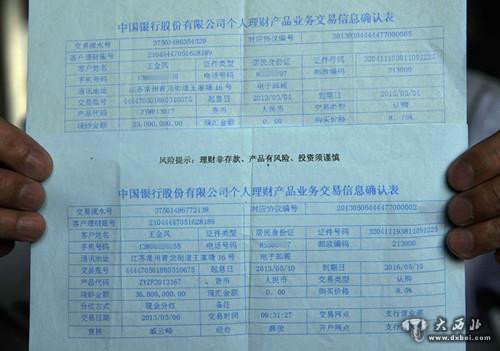 中国银行股份有限公司个人理财产品业务交易信息确认表
交易流水号 37503486354329 对应协议编号
客户理财账号 21044447051628189
客户姓名 王金凤 证件类型 居民身份证 证件号码
手机号码 电话号码 邮政编码 213000
通讯地址 江苏常州青龙街道王家塘16号 电子邮箱
交易账号 444470501880310675 起息日 2013/05/04 到期日
产品代码 货币 人民币 交易类型 认购
现钞金额 现汇金额 0.00 购买价格 8.75%
风险提示：理财非存款、产品有风险、投资须谨慎
中国银行股份有限公司个人理财产品业务交易信息确认表
交易流水号 37501486772138 对应协议编号 20130506444477000002
客户理财账号 21044447051628189
客户姓名 王金凤 证件类型 居民身份证 证件号码
手机号码 电话号码 邮政编码 213000
通讯地址 江苏常州青龙街道王家塘16号 电子邮箱
交易账号 444470501880310675 起息日 2013/05/10 到期日 2016/05/10
产品代码 ZYZF2013167 货币 人民币 交易类型 认购
现钞金额 现汇金额 0.00 购买价格 8.5%
分红方式 现金分红 备注
交易日期 2013/05/06 交易时间 09:31:27 交易网点 支行营业部
复核 戚云峰 经办 开户网点
大西北
www.dxbei.com